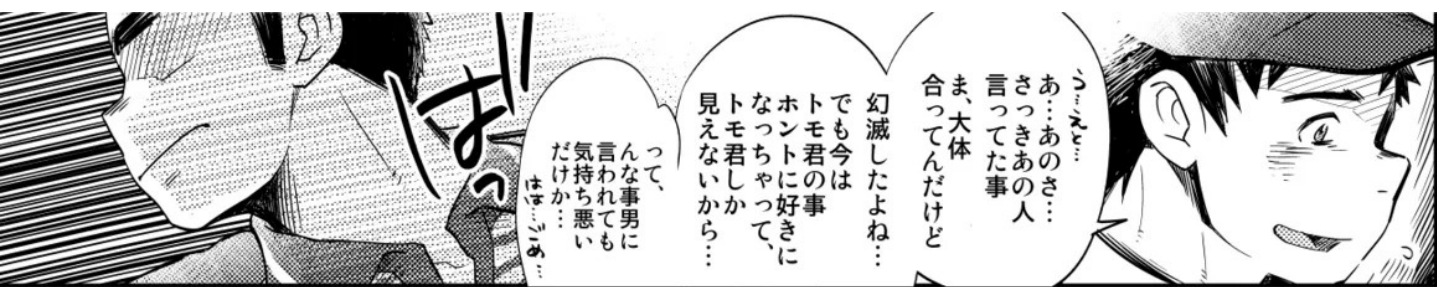 う…えと…
あ…あのさ…
さっきあの人
言ってた事
ま、大体
合ってんだけど
幻滅したよね…
でも今は
トモ君の事
ホントに好きに
なっちゃって、
トモ君しか
見えないから…
って、
んな事男に
言われても
気持ち悪い
だけか…
はは…ごめ…
はっ